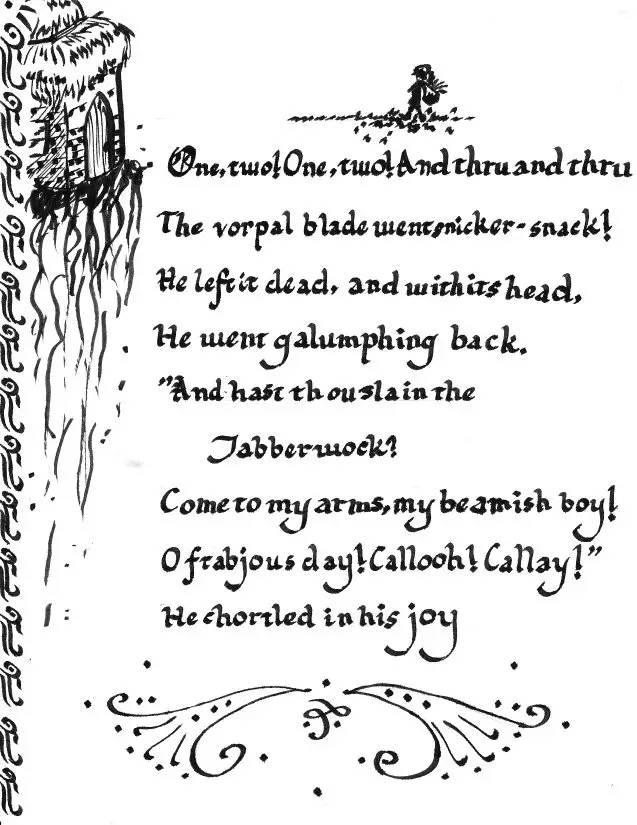 One, two! One, two! And thru and thru
The vorpal blade went snicker-snack!
He left it dead, and with its head,
He went galumphing back.
"And hast thou slain the
Jabberwock?
Come to my arms, my beamish boy!
O frabjous day! Callooh! Callay!"
He chortled in his joy